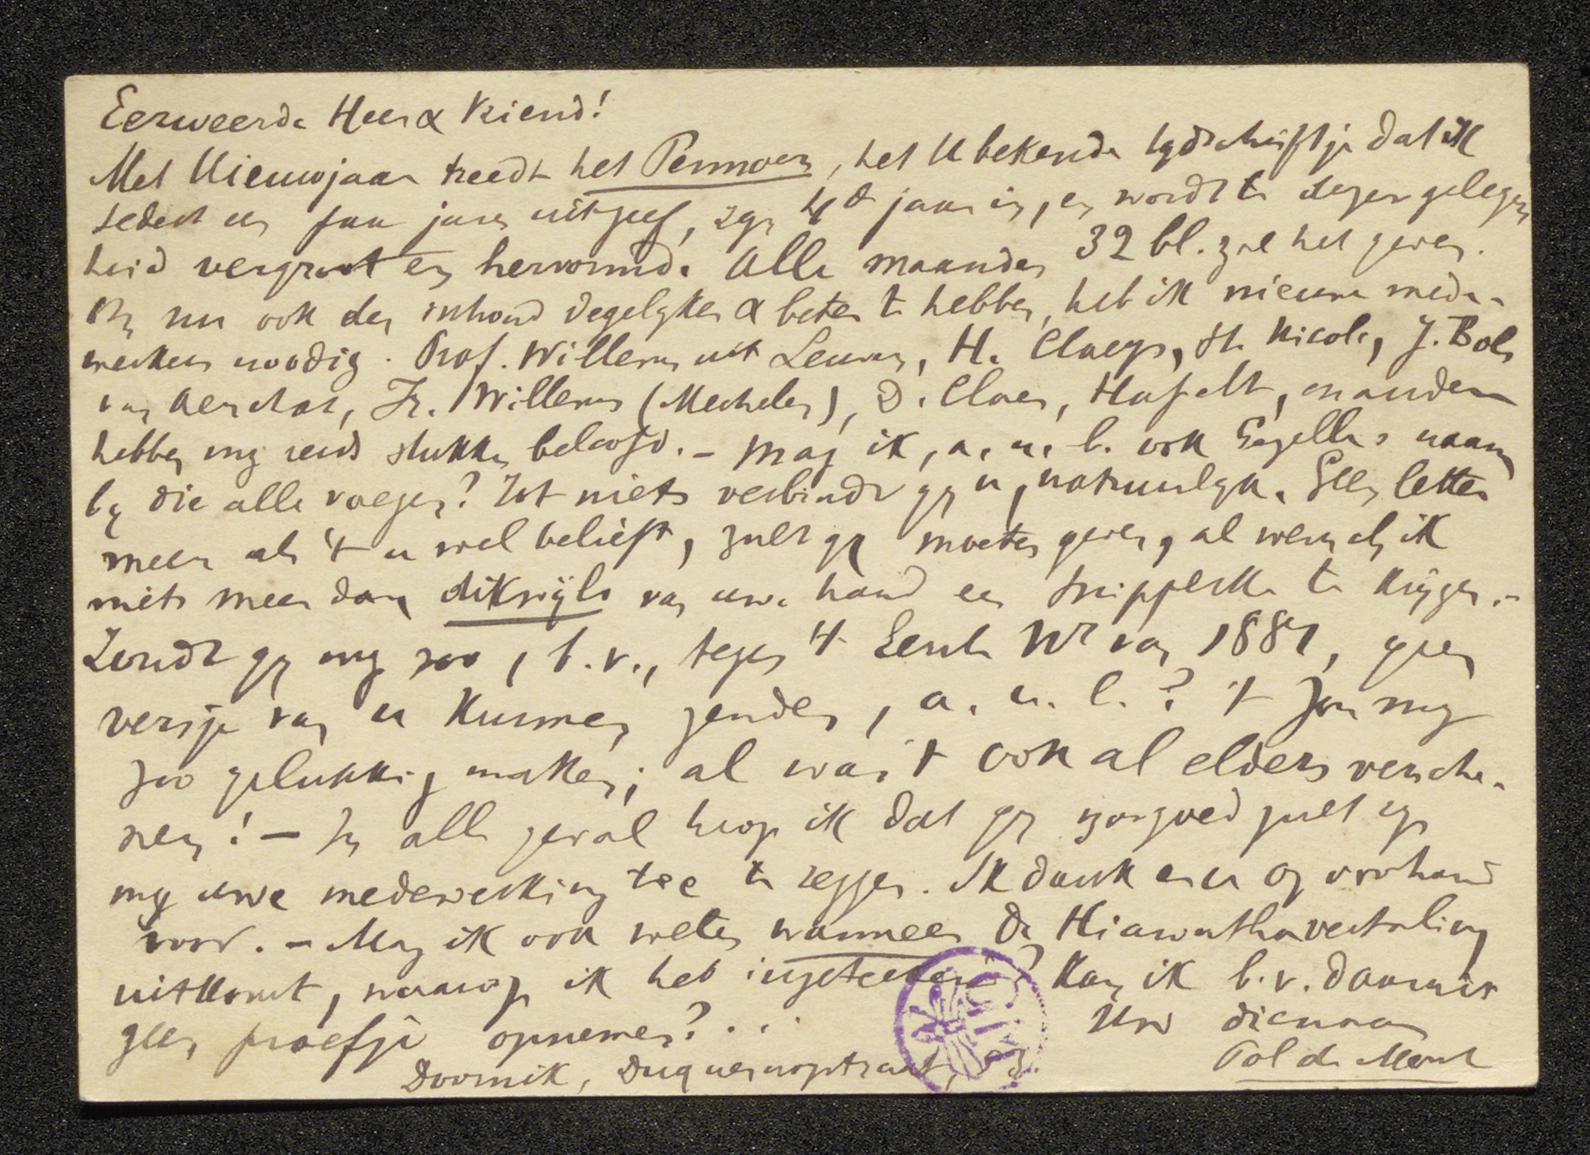 Eerweerde Heer & Vriend!
Met Nieuwjaar treedt het Pennoen, het U bekende tydschriftje dat ik
sedert een paar jaren uitgeef, zyn 4de jaar in, en wordt te dezer gelegen
heid vergroot en hervormd. Alle maanden 32 bl. zal het geven.
Om nu ook den inhoud degelyker & beter te hebben, heb ik nieuwe mede-
werkers noodig. Prof. Willems uit Leuven, H. Claeys, St. Nicole, J. Bols
van Aerschot, Fr. Willems (Mechelen), D. Claes, Hasselt, en anderen
hebben my reeds stukken beloofd. – Mag ik, a. u. b. ook Gezelle's naam
by die alle voegen? Tot niets verbindt gy u, natuurlyk. Geen letter
meer als 't u wel belieft, zult gy moeten geven, al wensch ik
niets meer dan dikwijls van uwe hand een snipperke te krijgen. –
Zoudt gy my zoo, b. v., tegen 't Eerste Nr van 1881, geen
versje van u kunnen zenden, a. u. b.? 't Zou my
zoo gelukkig maken; al waar 't ook al elders versche-
nen! – In alle geval hoop ik dat gy zoo goed zult zyn
my uwe medewerking toe te zeggen. Ik dank er u op voorhand
voor. – Mag ik ook weten wanneer de Hiawathavertaling
uitkomt, waarop ik heb ingeteekend? Kan ik b. v. daaruit
geen proefje opnemen? ...
Uw dienaar
Pol de Mont
Doornik, Duquesnoystraat,